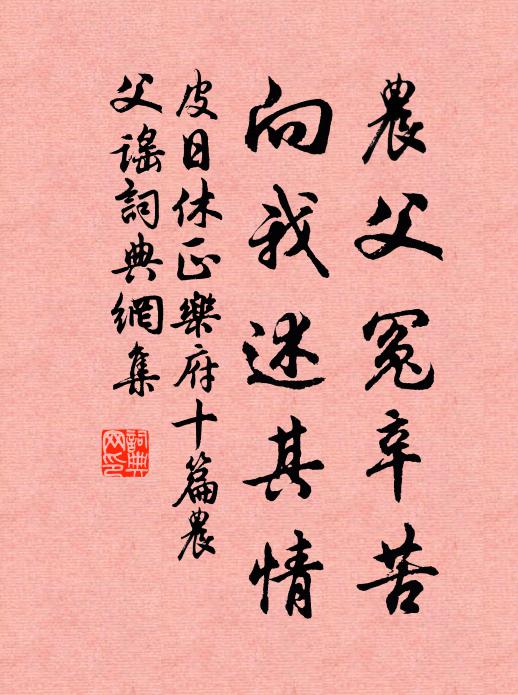 農父冤辛苦
向我述其情
皮日休正樂府十篇農
父謠詞典網集
詞典網印